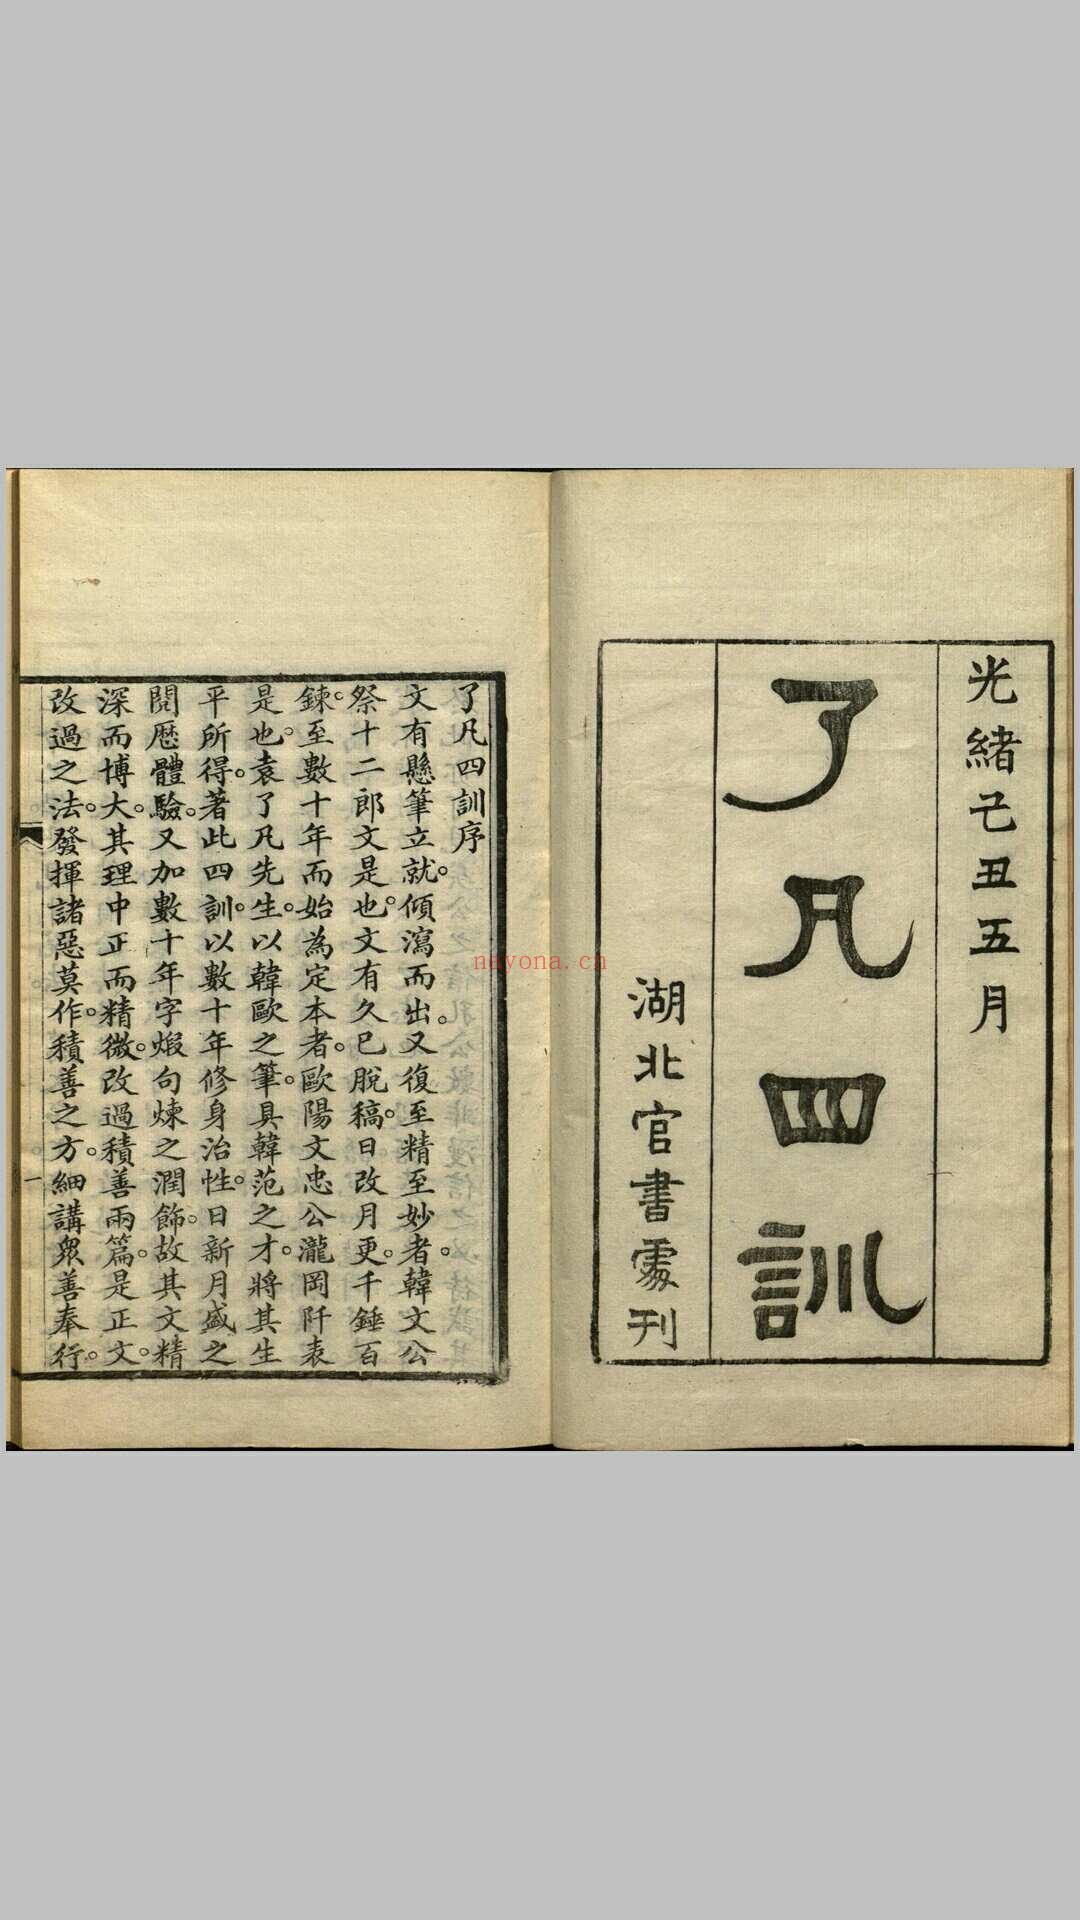 光緒己丑五月
了凡四訓
湖北官書處刊
了凡四訓序
文有懸筆立就。傾瀉而出。又復至精至妙者。韓文公
祭十二郎文是也。文有久已脫稿。日改月更。千錘百
鍊。至數十年而始為定本者。歐陽文忠公瀧岡阡表
是也。袁了凡先生。以韓歐之筆。具韓范之才。將其生
平所得。著此四訓。以數十年修身治性。日新月盛之
閱歷體驗。又加數十年字煆句煉之潤飾。故其文精
深而博大。其理中正而精微。改過積善兩篇。是正文。
改過之法。發揮諸惡莫作。積善之方。細講眾善奉行。
一
nayona.cn